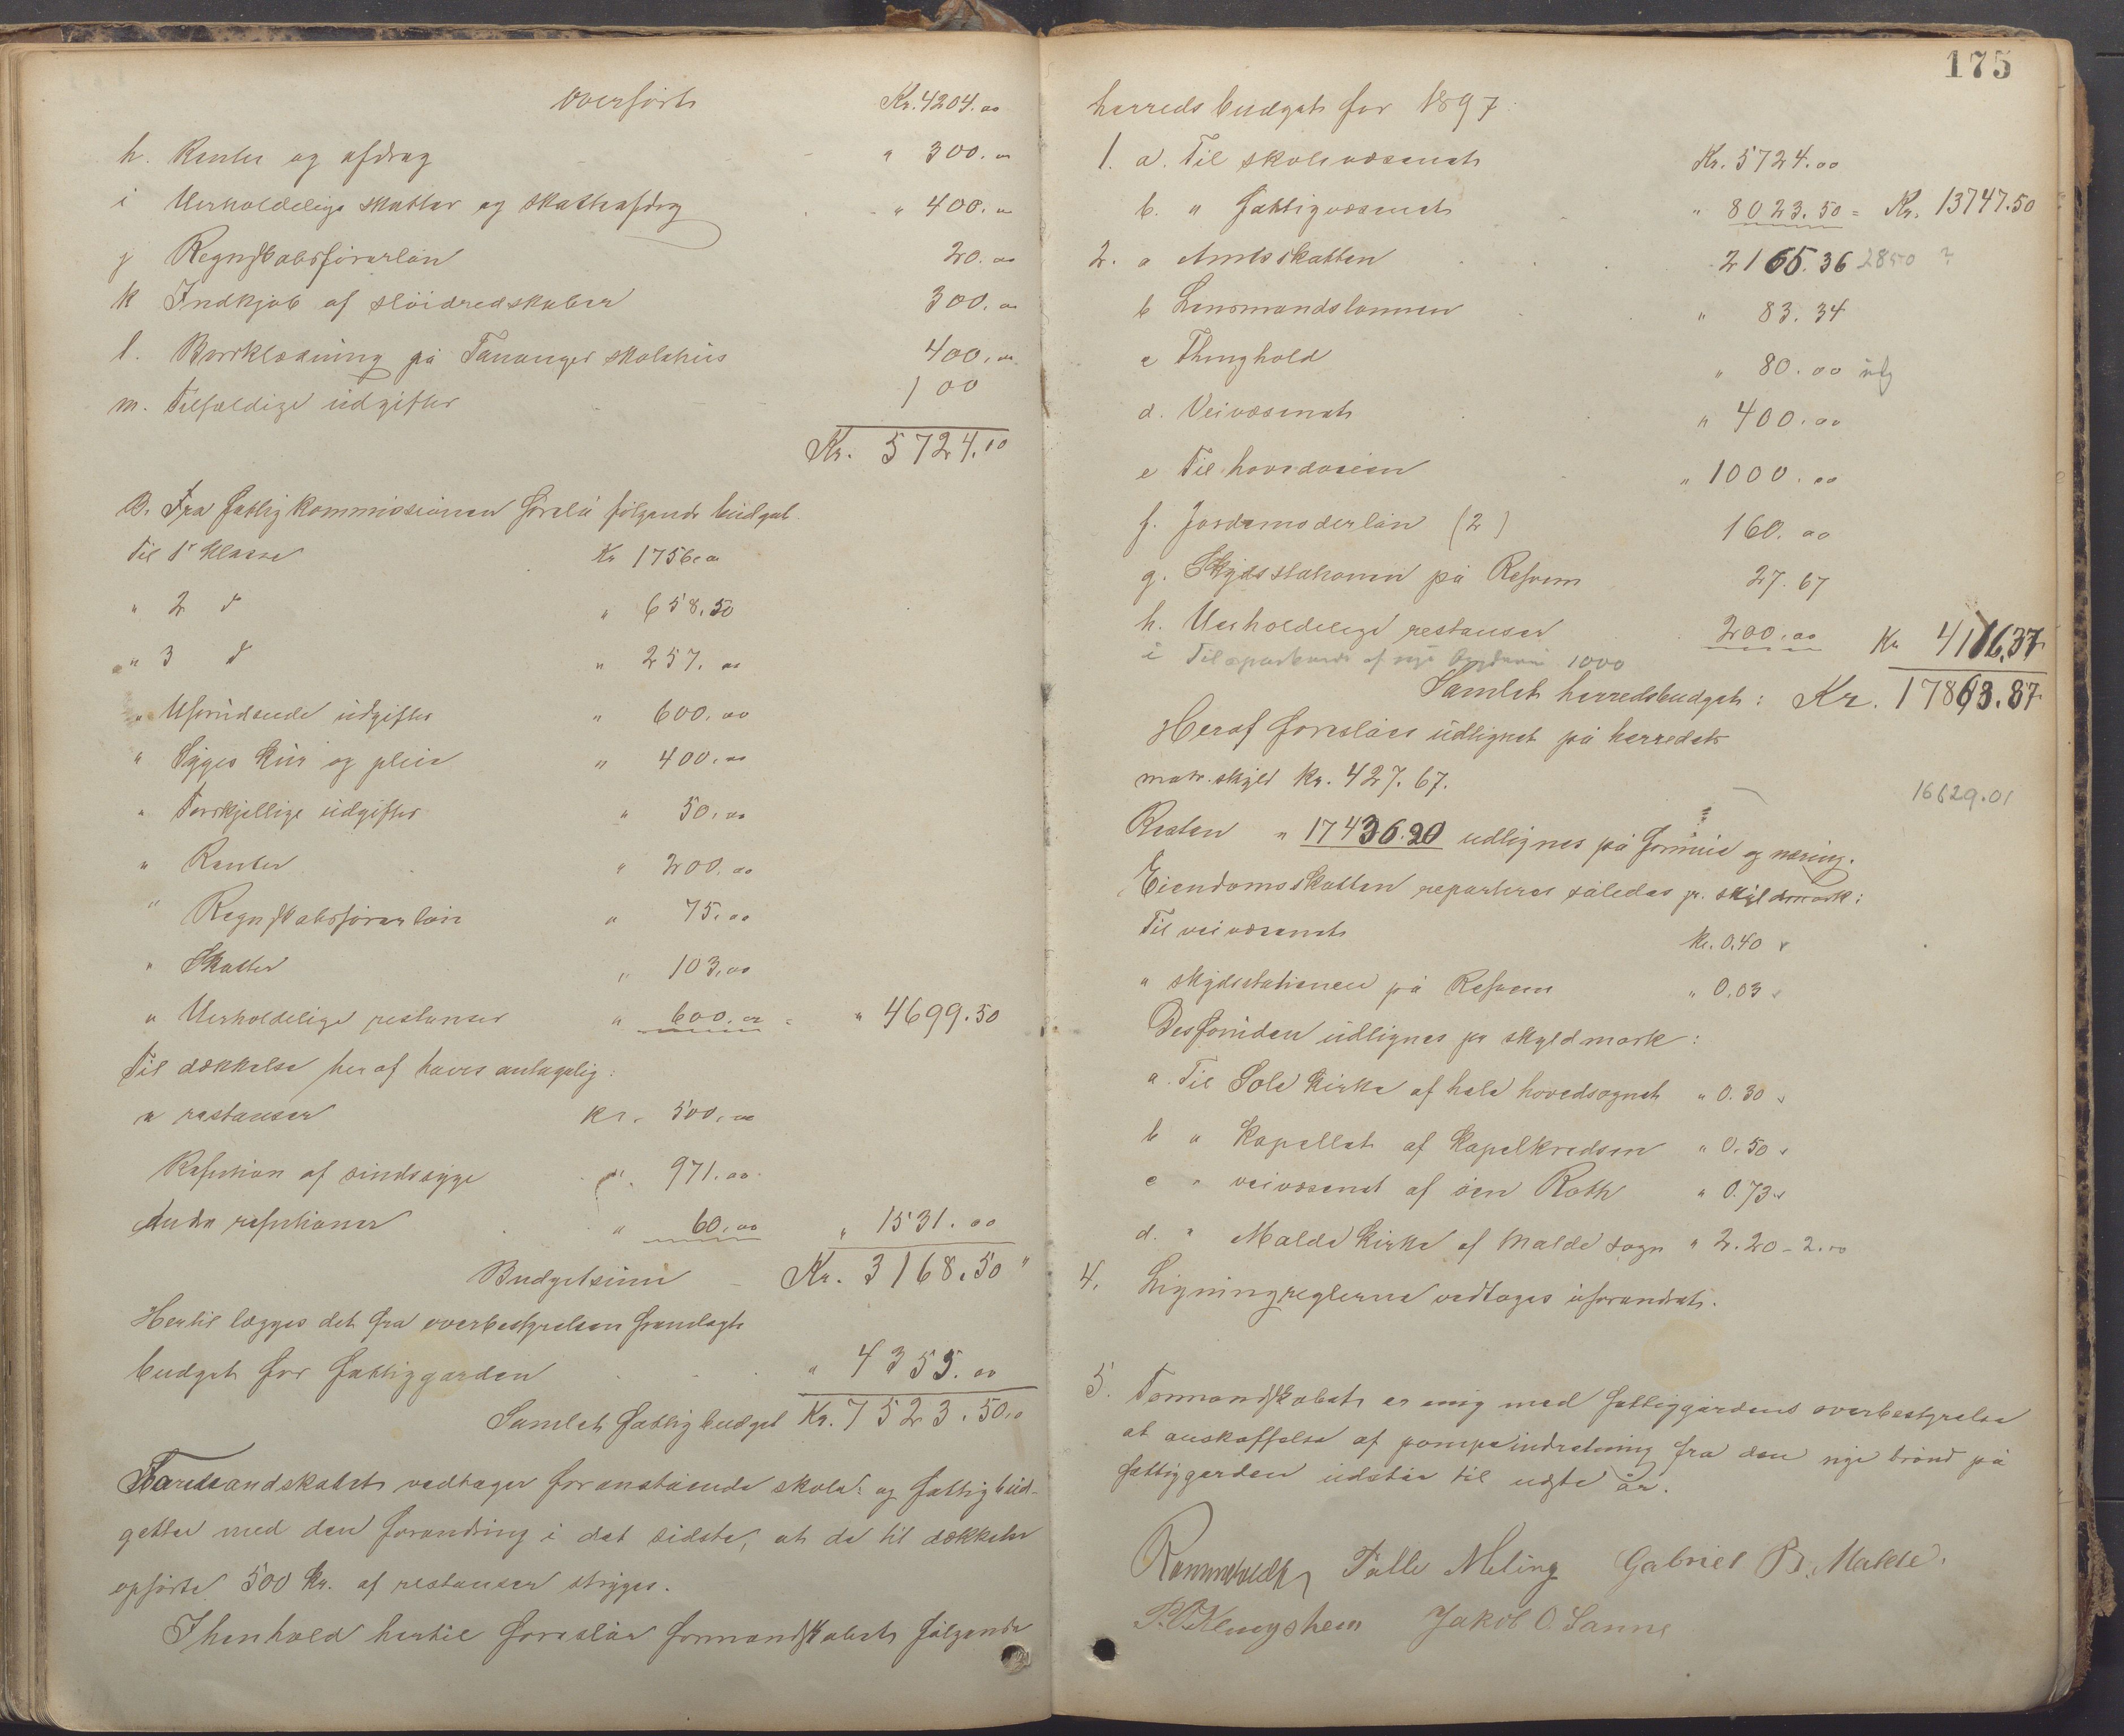 overført Kr. 4204.00
h. Renter og afdrag " 300.00
i Uerholdelige skatter og skatteafdrag " 400.00
j Regnskabsførerløn 20.00
k Indkjøb af sløidredskaber 300.00
l. Bordklædning på Tananger skolehus 400.00
m. Tilfældige udgifter 100
Kr. 5724.00
B. Fra Fattigkommissionen forelå følgende budget
Til 1ste Klasse Kr 1756.00
" 2 d " 658.50
" 3 d " 257.00
" Uforudseede udgifter " 600.00
" Syges kur og pleie " 400.00
" Forskjellige udgifter " 50.00
" Renter " 200.00
" Regnskabsførerløn " 75.00
" Skatter " 103.00
" Uerholdelige restanser " 600.00 = " 4699.50
Til dækkelse heraf haves antagelig:
a restanser Kr. 500.00
Refution af sindssyge " 971.00
Andre refutioner " 60.00 " 1531.00
Budgetsum – Kr. 3168.50 "
Hertil lægges det fra overbestyrelsen fremlagte
budget for fattiggarden " 4355.00
Samlet fattigbudget Kr. 7523.50
Formandskabet vedtager foranstående skole: og fattigbud-
getter med den forandring i det sidste, at de til dækkelse
opførte 500 Kr. af restanser stryges.
I henhold hertil foreslår formandskabet følgende
175
herredsbudget for 1897:
1. a. Til skolevæsenet Kr. 5724.00
b. " Fattigvæsenet " 8023.50 = Kr. 13747.50
2. a Amtsskatten 2165.36 2850 ?
b Lensmandslønnen " 83.34
c Thinghold " 80.00
d. Veivæsenet " 400.00
e Til hovedveien " 1000.00
f. Jordemoderløn (2) 160.00
g. Skydsstationen på Refsnes 27.67
h. Uerholdelige restanser 200.00 Kr 4116.37
i Til af nye 1000
Samlet herredsbudget: Kr. 17863.87
Heraf foreslåes udlignet på herredets
matr. skyld kr. 427.67.
16629.01
Resten " 17436.20 udlignes på formue og næring.
Eiendomsskatten reparteres således pr. skyldmark:
Til veivæsenet kr. 0.40
" skydsstationen på Refsnes " 0.03
Desforuden udlignes pr skyldmark:
a. Til Sole kirke af hele hovedsognet " 0.30
b " Kapellet af Kapelkredsen " 0.50
c " veivæsenet af øen Roth " 0.73
d. " Malde Kirke af Malde sogn " 2.20 – 2.00
4. Ligningreglerne vedtages uforandret.
5. Formandskabet er enig med fattiggårdens overbestyrelse
at anskaffelse af pumpeindretning fra den nye brønd på
fattiggarden udstår til næste år.
Tolle Meling Gabriel B. Malde.
Jakob O. Sanne